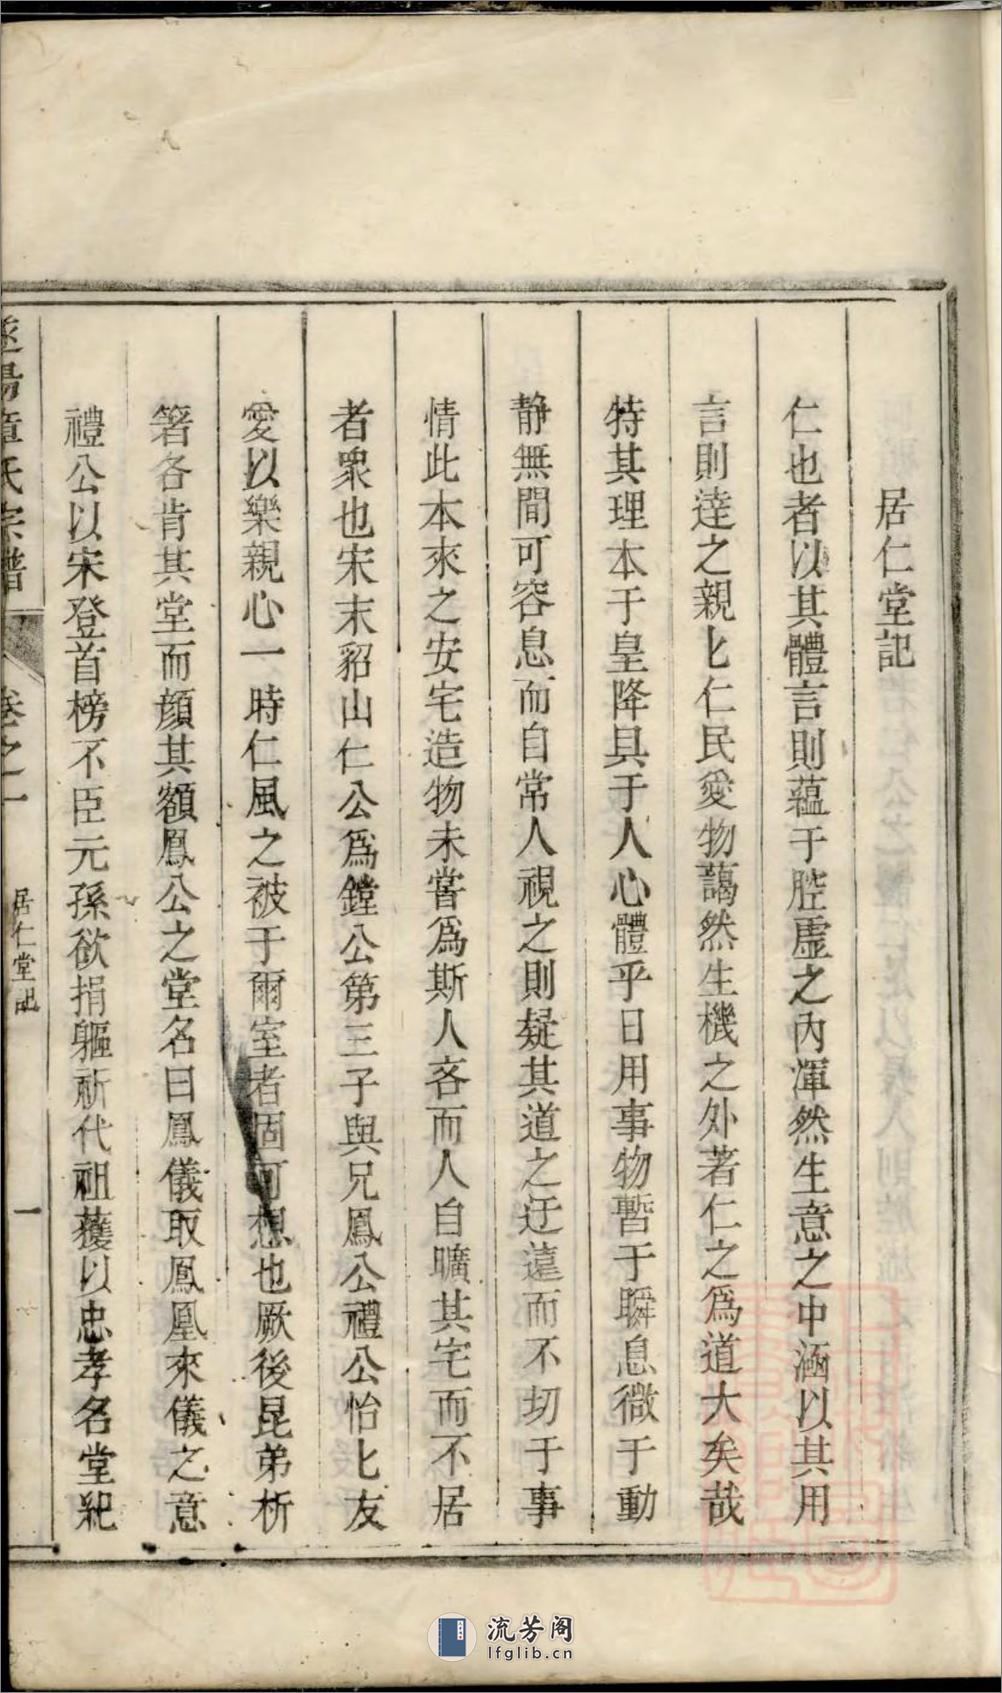 居仁堂記
仁也者以其體言則蘊于腔虛之內渾然生意之中涵以其用
言則達之親匕仁民愛物藹然生機之外著仁之爲道大矣哉
特其理本于皇降具于人心體乎日用事物暫于瞬息微于動
静無間可容息而自常人視之則疑其道之迂遠而不切于事
情此本來之安宅造物未嘗爲斯人吝而人自曠其宅而不居
者衆也宋末貂山仁公爲鏜公第三子與兄鳳公禮公怡匕友
愛以樂親心一時仁風之被于爾室者固可想也厥後昆弟析
箸各肯其堂而顔其額鳳公之堂名曰鳳儀取鳳凰來儀之意
禮公以宋登首榜不臣元孫欲捐軀祈代祖獲以忠孝名堂紀
章氏宗譜 卷之一 居仁堂記 一
流芳阁
lfglib.cn